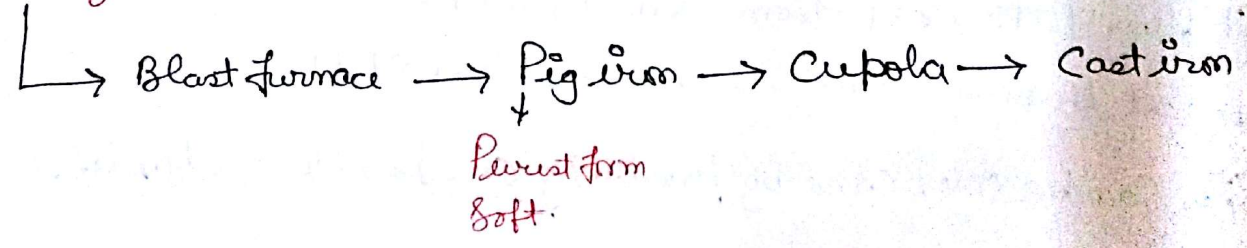 Blast furnace → Pig iron → Cupola → Cast iron
Purest form
Soft.